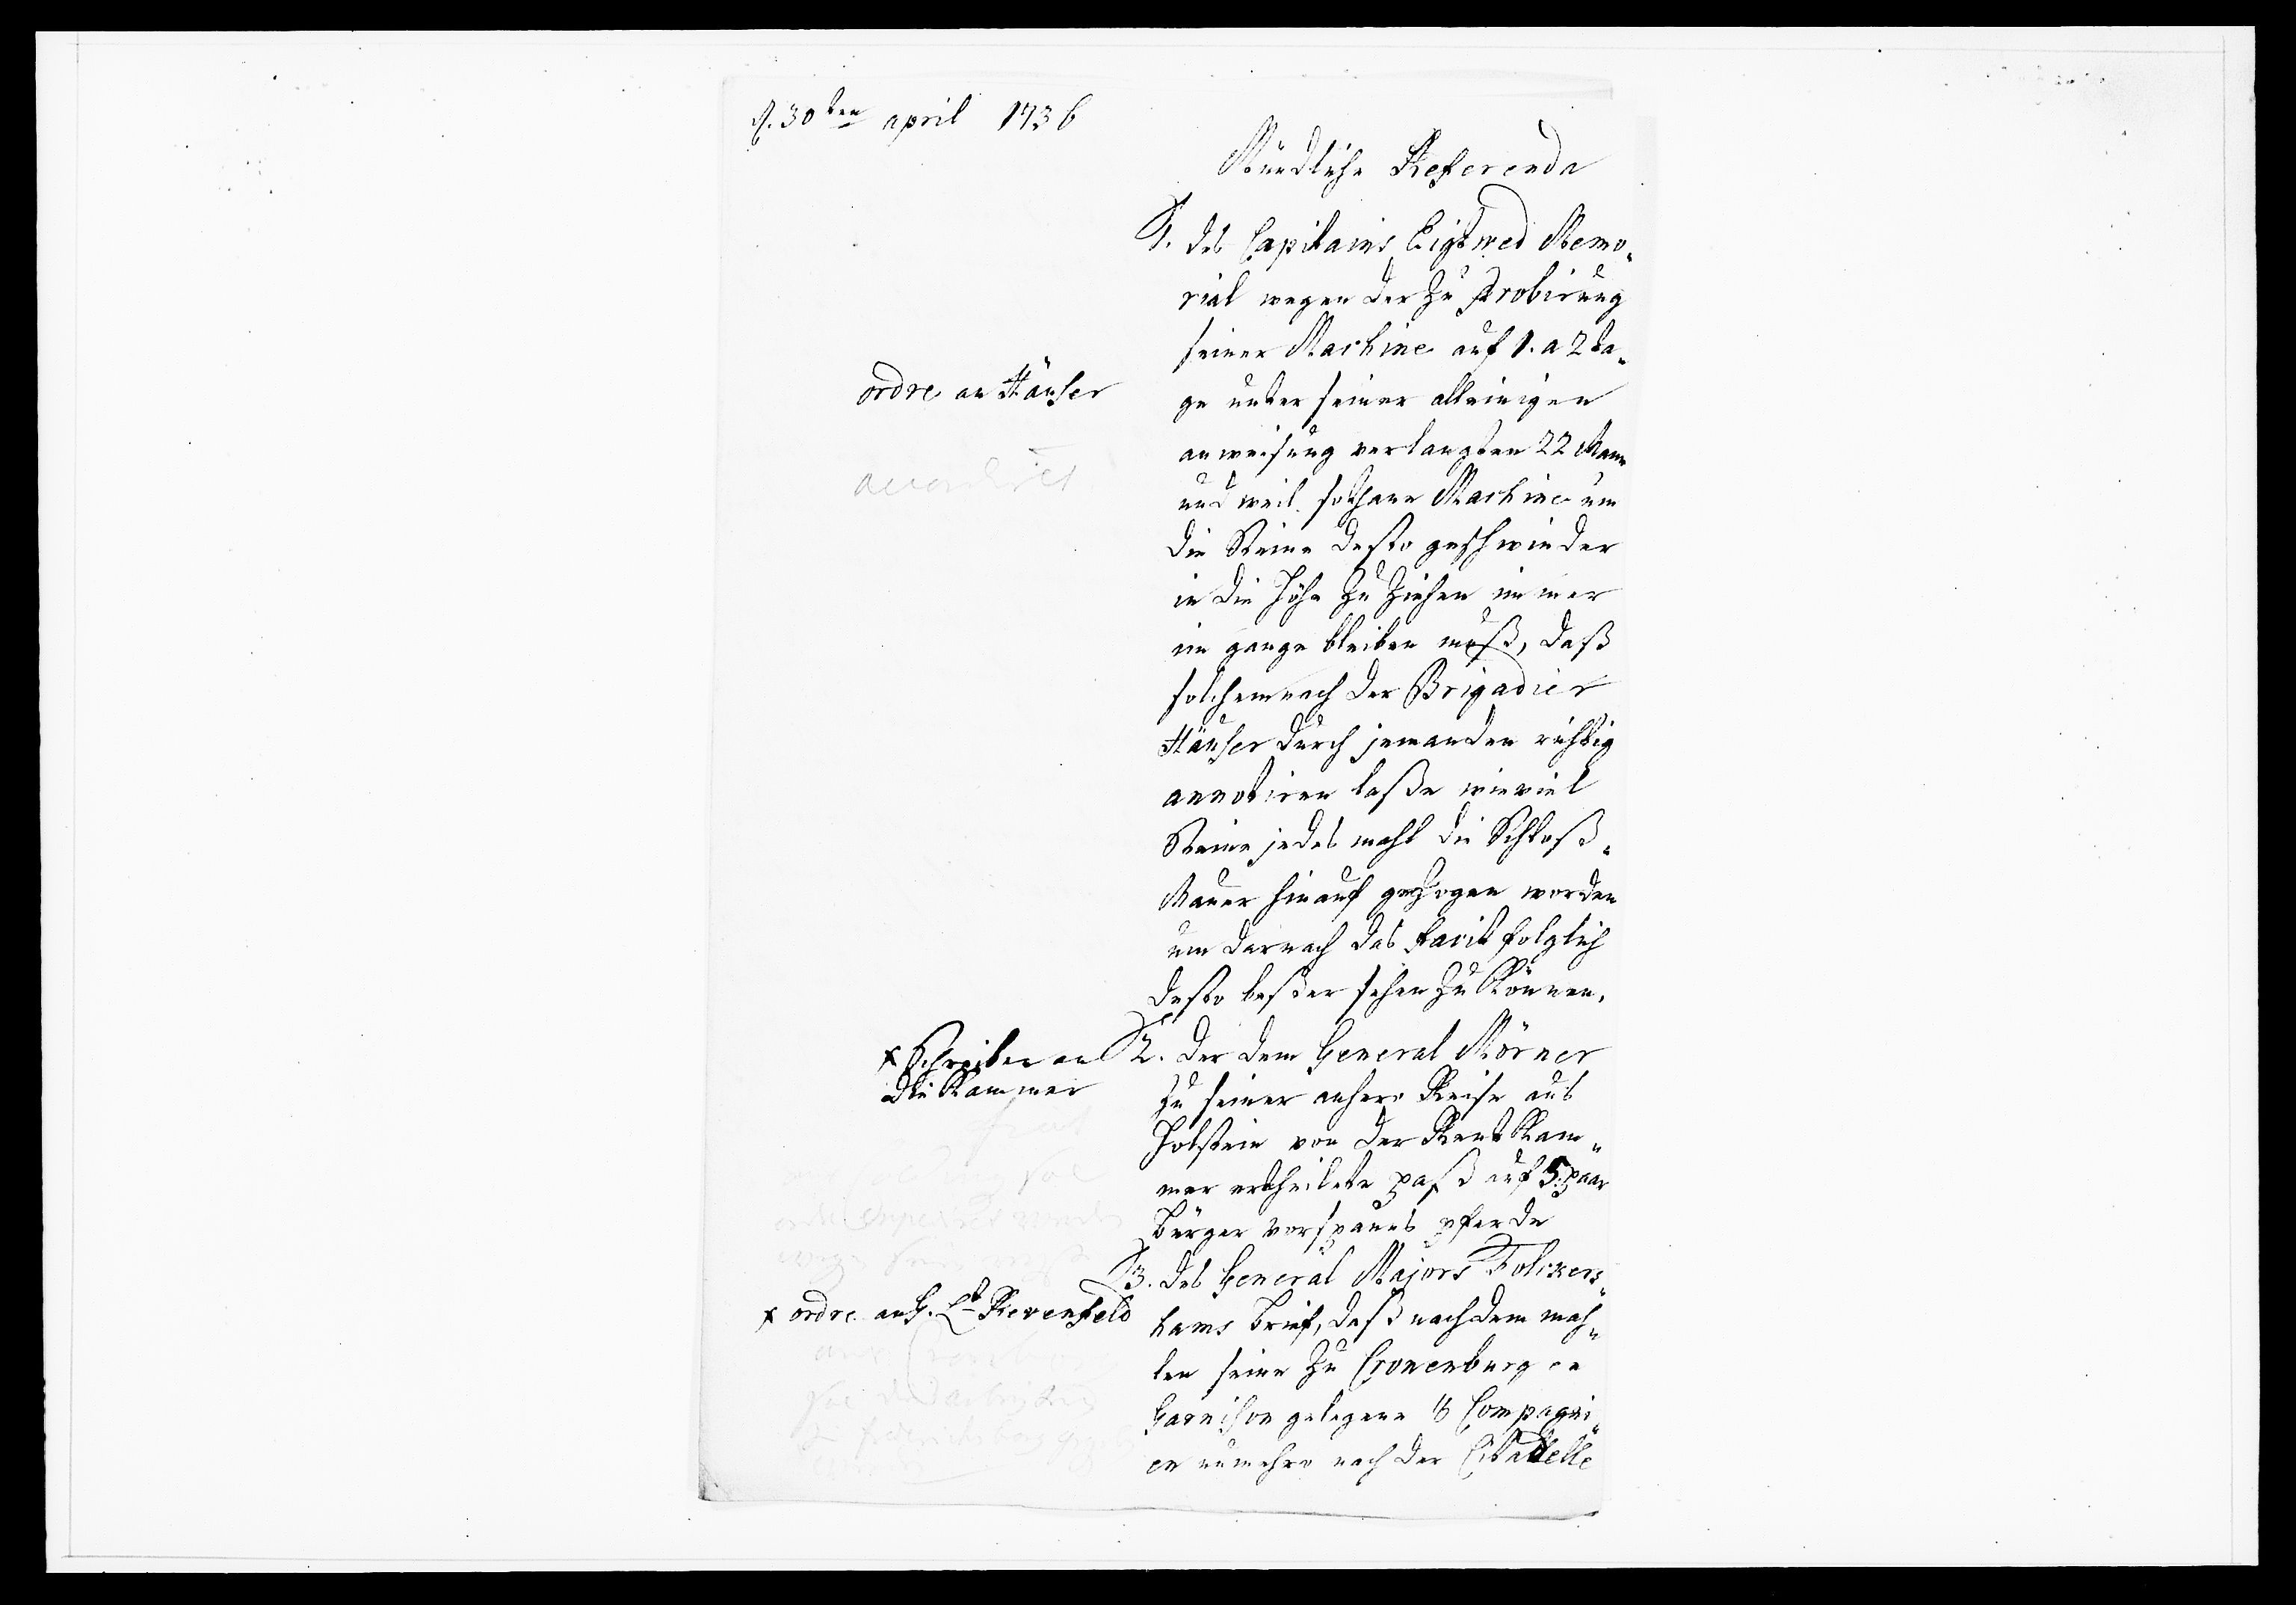 d. 30ten april 1736
Mündliche Referenda
1. des Capitains Eigtwed Memo-
rial wegen der zu Probirung
seiner Machine auf 1. a 2 ta-
ge unter seiner alleinigen
anweisung verlangten 22 Mann
und weil sothane Machine um
die Steine desto geschwinder
in die Höhe zu ziehen immer
im gange bleiben muß, daß
solchemnach der Brigadier
Häuser durch jemanden richtig
annotiren laße wieviel
Steine jedes mahl die Schloß-
Mauer hinauf gezogen worden
um darnach das facit folglich
desto beßer sehen zu können.
ordre an Häuser
accordiret
2. der dem General Mörner
zu seiner anhero Reise aus
Holstein von der Rent Kam-
mer ertheilete paß auf 5. paar
bürger vorspanns pferde
x Schreiben an
die Kammer
3. des General Majors Folckers-
hams brief, daß nachdem mah-
len seine zu Cronenburg in
Garnison gelegene 6 Compagni-
en nunmehro nach der Citadelle
x ordre an G. Lt Revenfeld